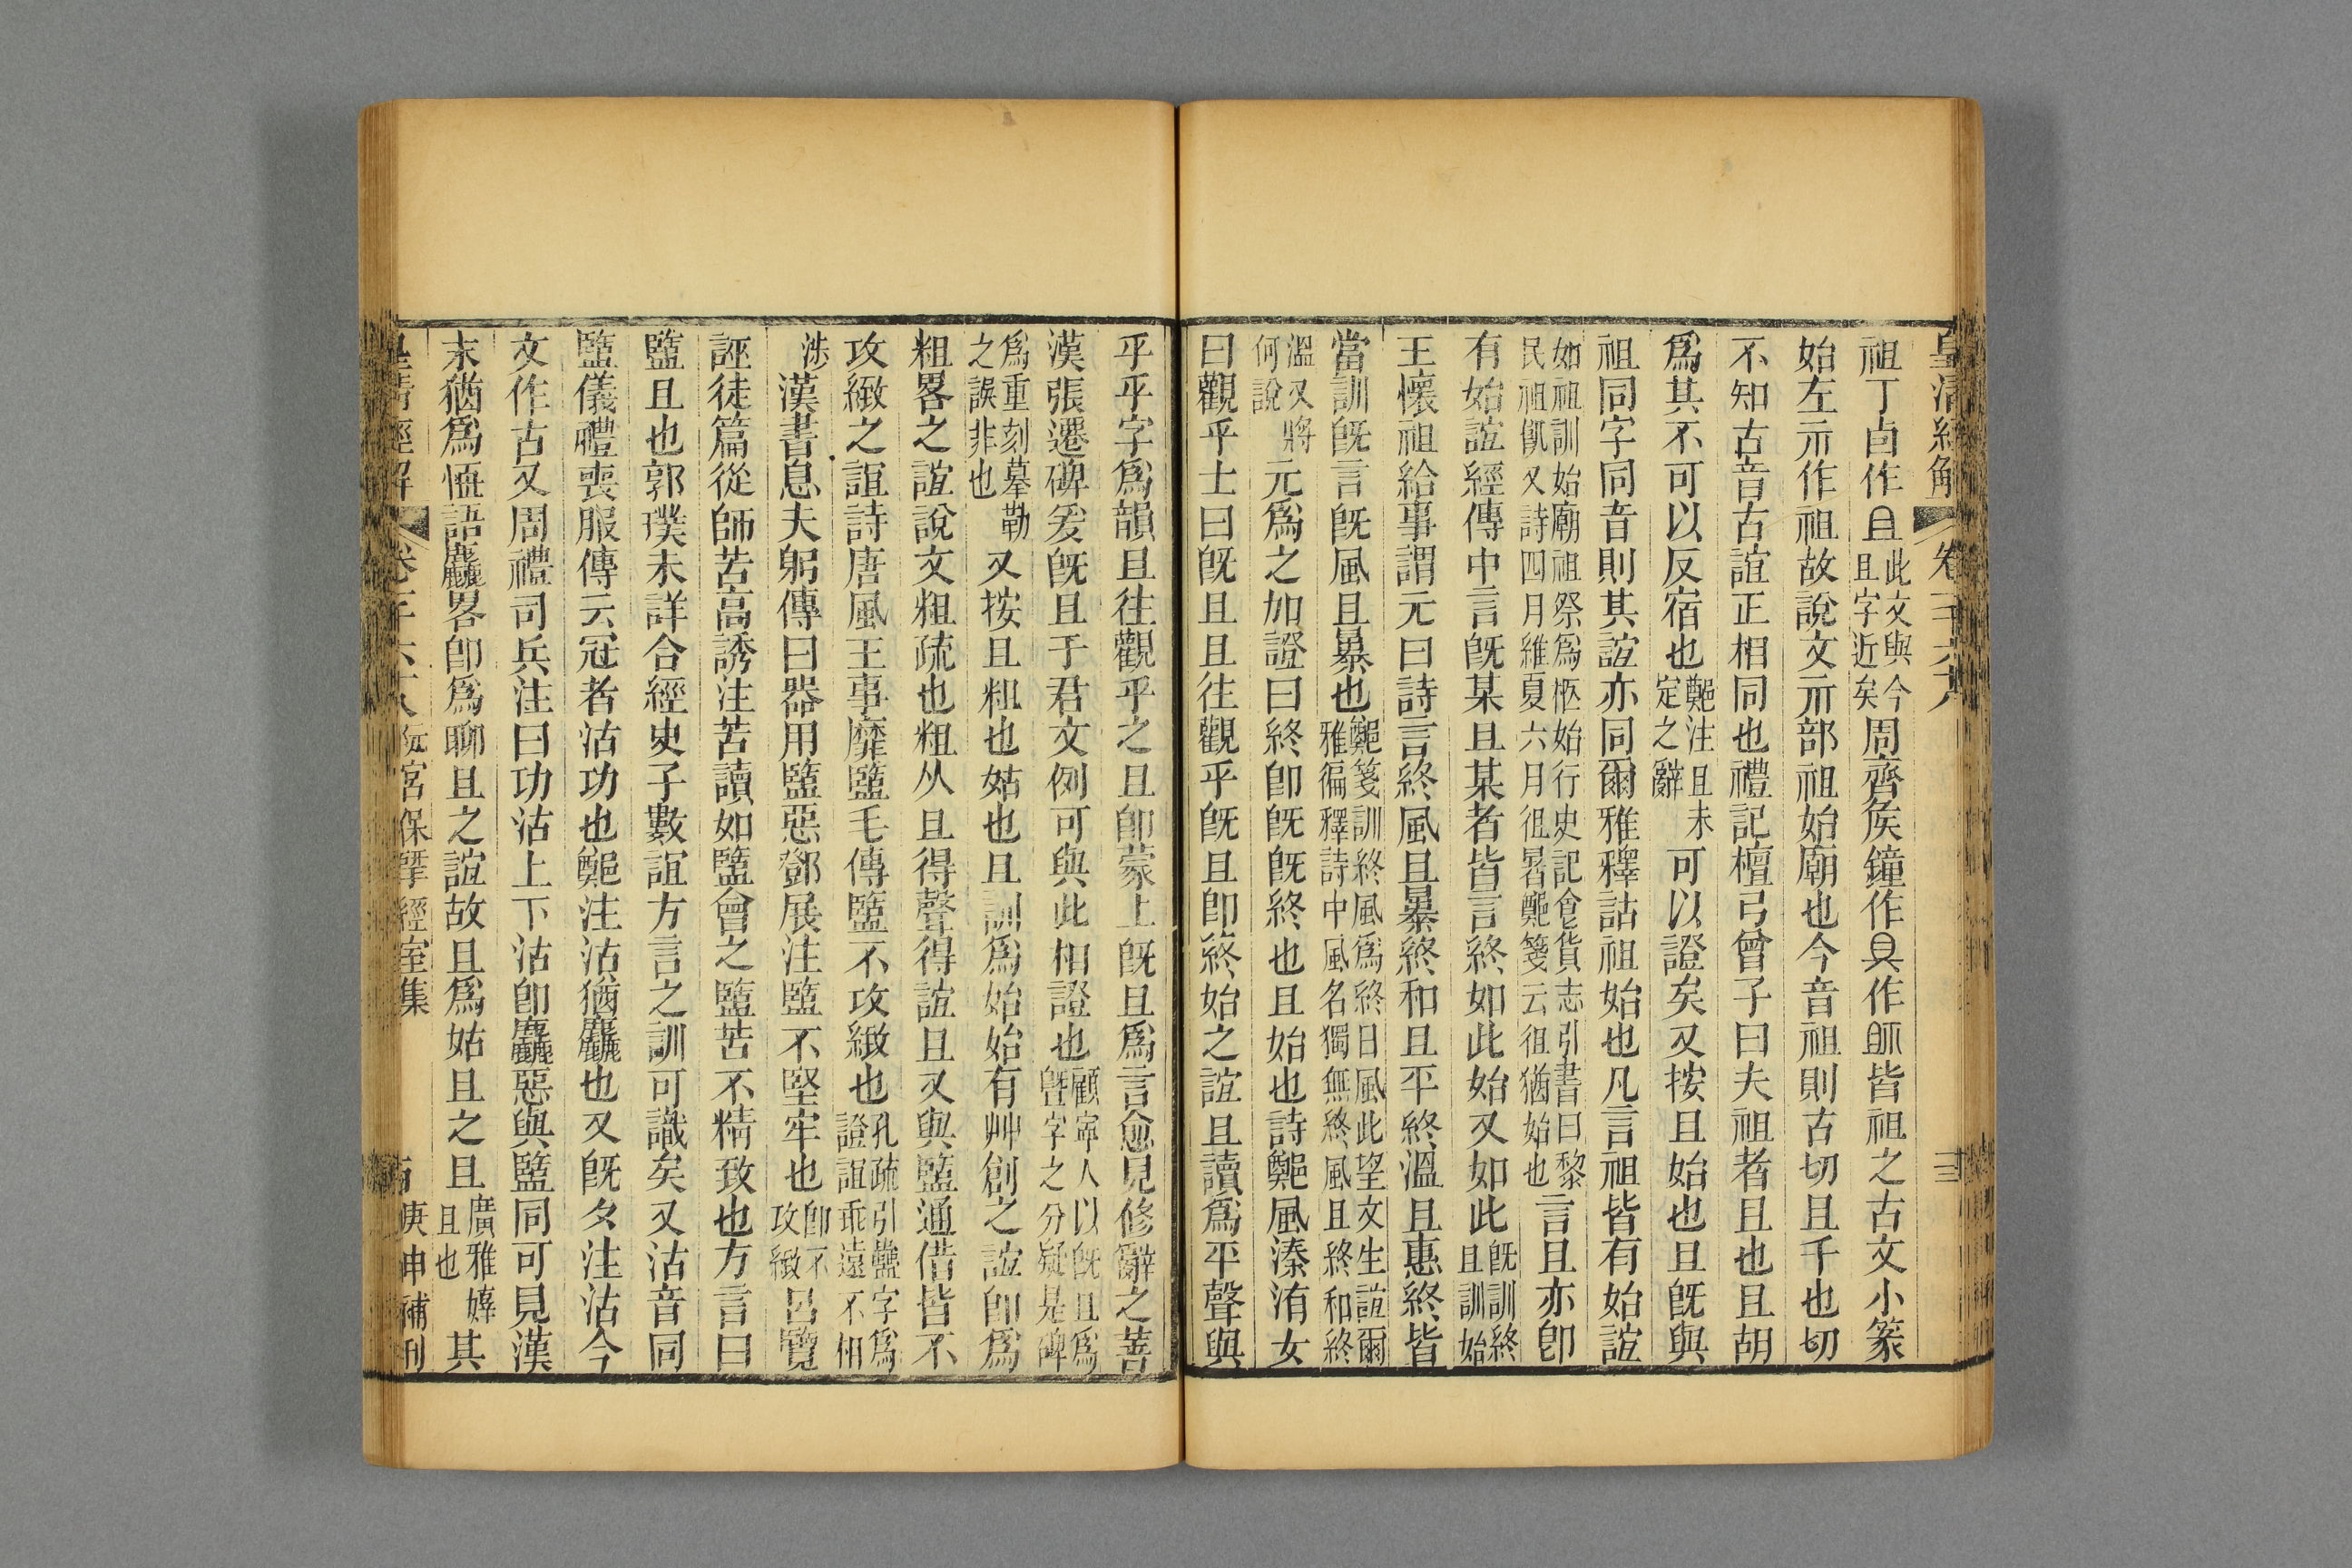 皇清經解 卷一千六十八 三
祖丁卣作且此文與今且字近矣周齊侯鐘作具作𥘵皆祖之古文小篆
始左示作祖故說文示部祖始廟也今音祖則古切且千也切
不知古音古誼正相同也禮記檀弓曾子曰夫祖者且也且胡
爲其不可以反宿也鄭注且未定之辭可以證矣又按且始也且旣與
祖同字同音則其誼亦同爾雅釋詁祖始也凡言祖皆有始誼
如祖訓始廟祖祭爲柩始行史記食貨志引書曰黎民祖飢又詩四月維夏六月徂暑鄭箋云徂猶始也言且亦卽
有始誼經傳中言旣某且某者皆言終如此始又如此旣訓終且訓始
王懷祖給事謂元曰詩言終風且暴終和且平終溫且惠終皆
當訓旣言旣風且暴也鄭箋訓終風爲終日風此望文生誼爾雅徧釋詩中風名獨無終風且終和終
溫又將何說元爲之加證曰終卽旣旣終也且始也詩鄭風溱洧女
曰觀乎士曰旣且且往觀乎旣且卽終始之誼且讀爲平聲與
乎乎字爲韻且往觀乎之且卽蒙上旣且爲言愈見修辭之善
漢張遷碑爰旣且于君文例可與此相證也顧寧人以旣且爲曁字之分疑是碑
爲重刻摹勒之誤非也又按且粗也姑也且訓爲始始有艸創之誼卽爲
粗畧之誼說文粗疏也粗从且得聲得誼且又與盬通借皆不
攻緻之誼詩唐風王事靡盬毛傳盬不攻緻也孔疏引蠱字爲證誼乖遠不相
涉漢書息夫躬傳曰器用盬惡鄧展注盬不堅牢也卽不攻緻呂覽
誣徒篇從師苦高誘注苦讀如盬會之盬苦不精致也方言曰
盬且也郭璞未詳合經史子數誼方言之訓可識矣又沽音同
盬儀禮喪服傳云冠者沽功也鄭注沽猶麤也又旣夕注沽今
文作古又周禮司兵注曰功沽上下沽卽麤惡與盬同可見漢
末猶爲恆語麤畧卽爲聊且之誼故且爲姑且之且廣雅嫴且也其
皇清經解 卷一千六十八 阮宮保揅經室集 庚申補刊